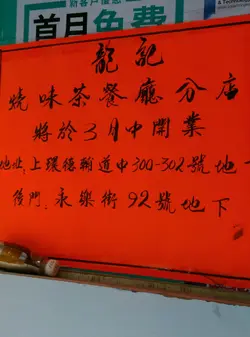 新客戶優惠
首月免費
& Technology
龍記
燒味茶餐廳分店
將於3月中開業
地址,上環德輔道中300-302號地下
後門,永樂街92號地下